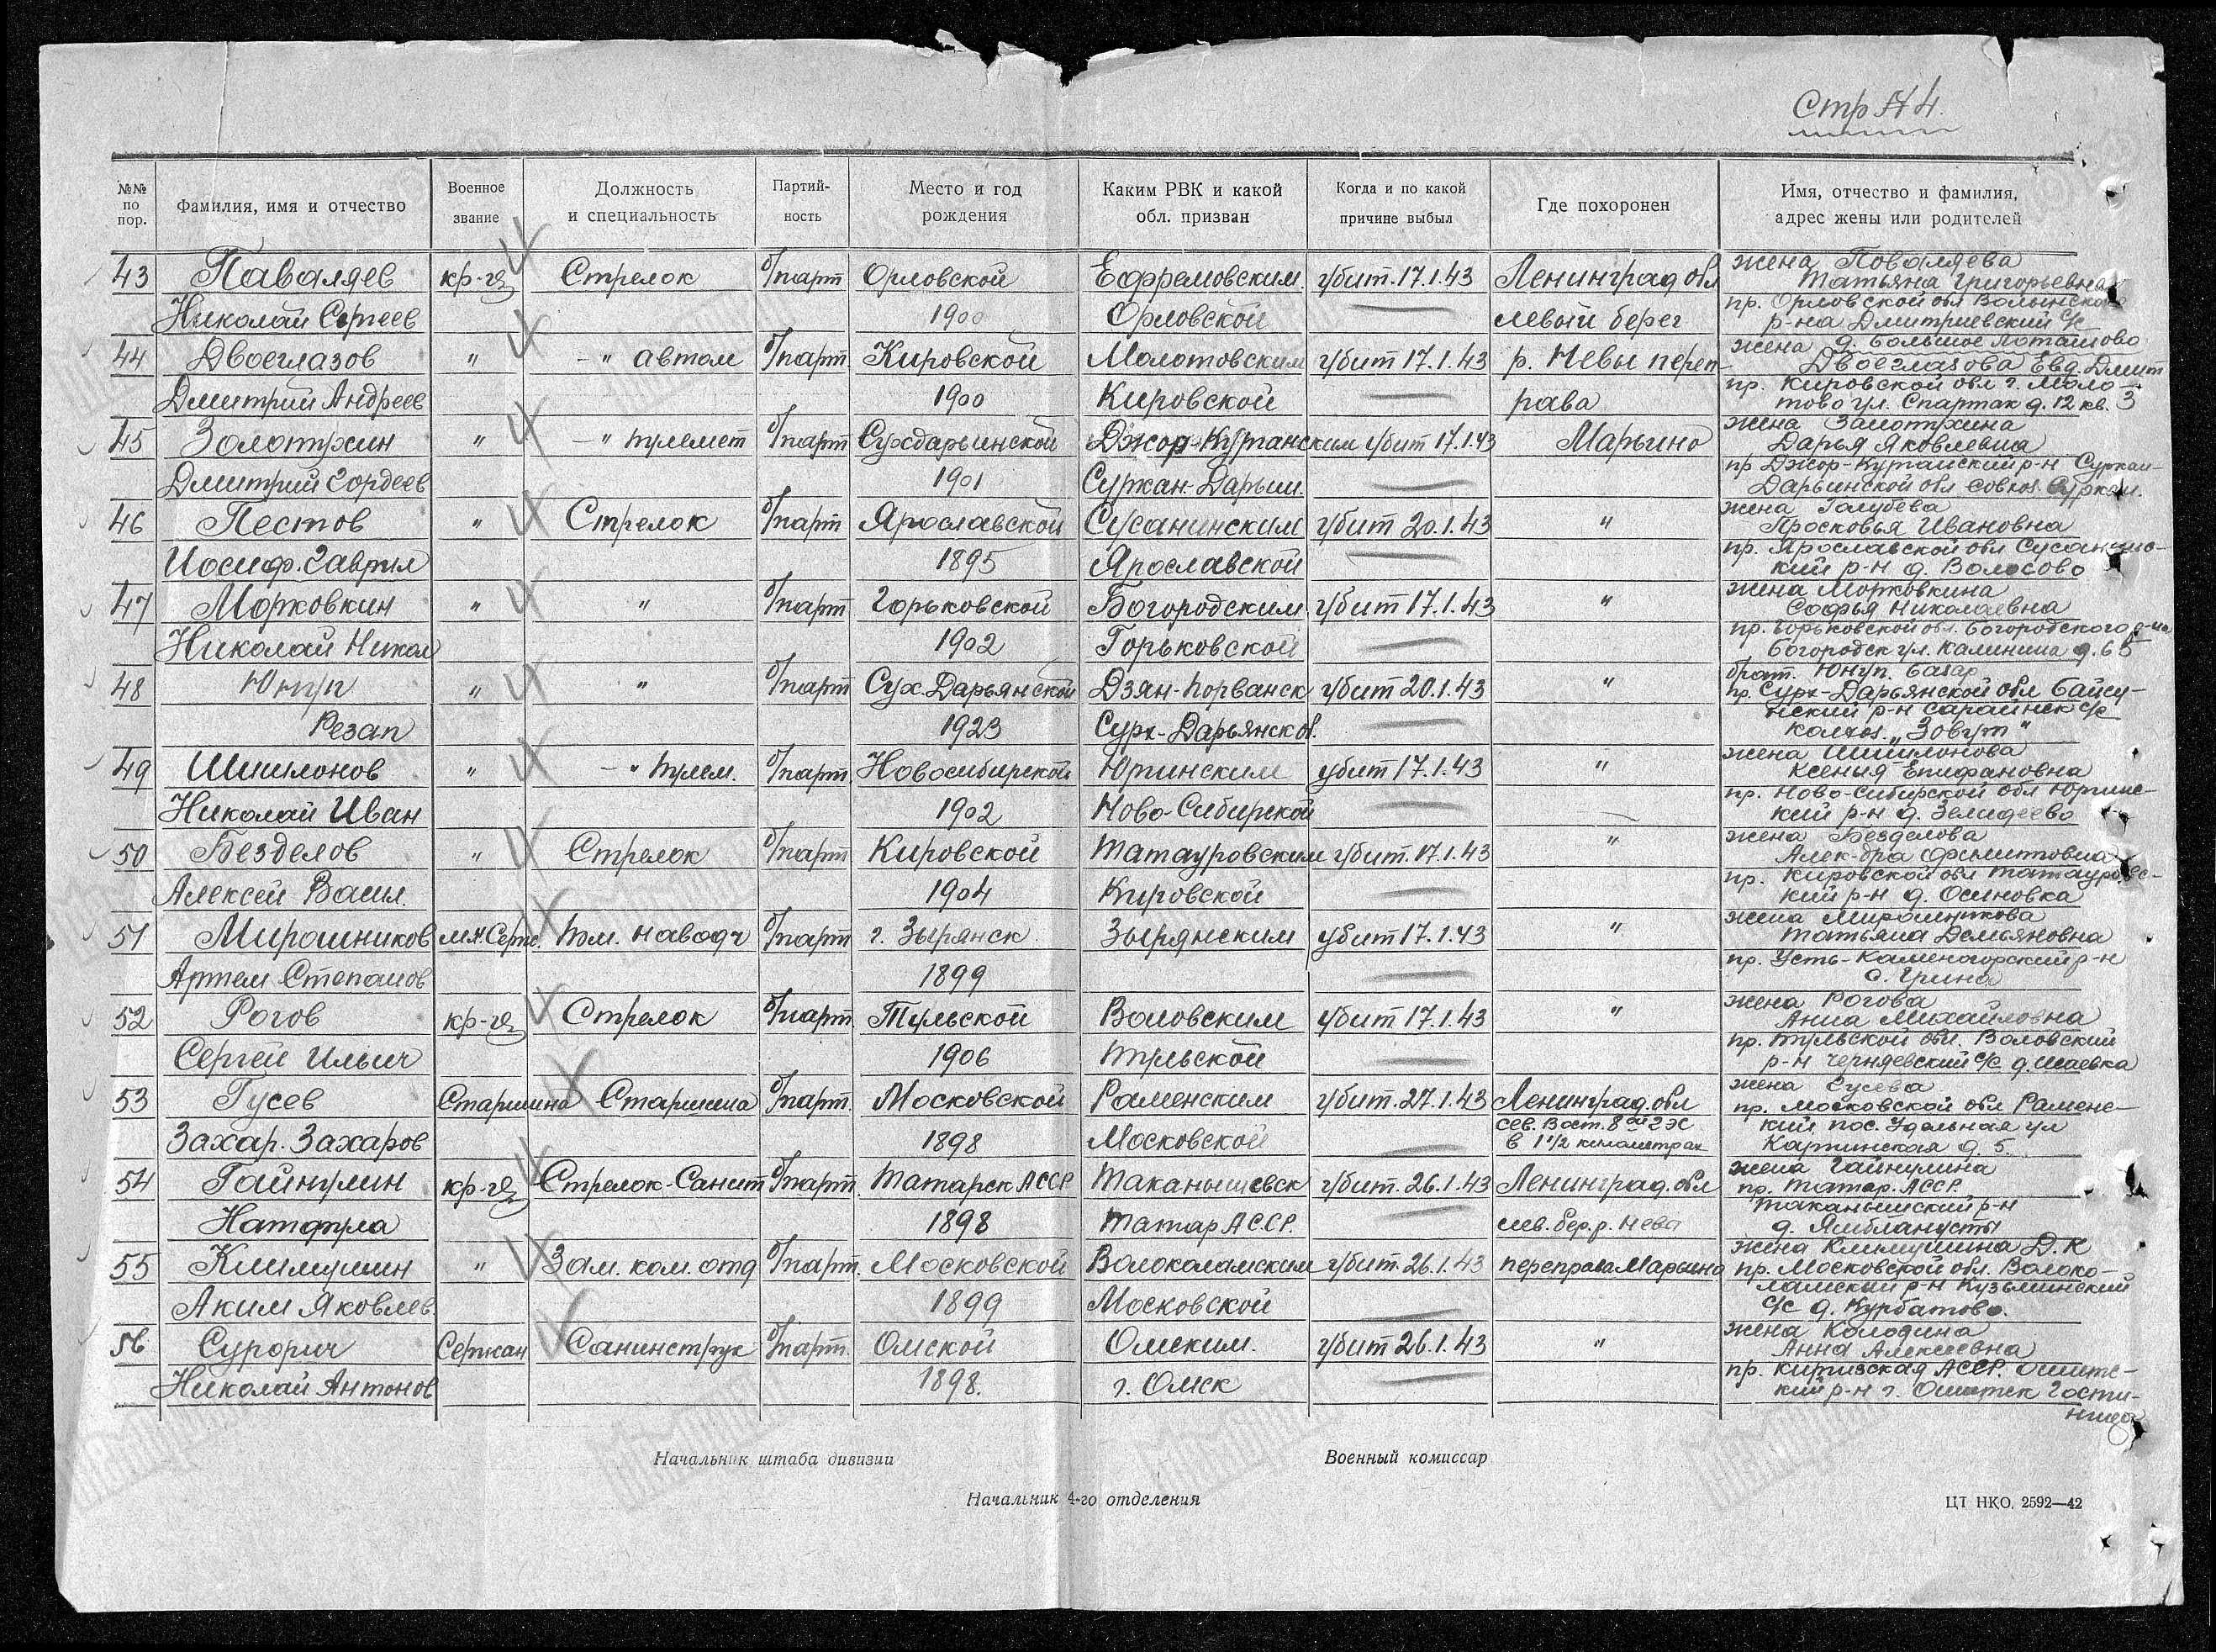 Стр № 4.
№№ по пор. Фамилия, имя и отчество Военное звание Должность и специальность Партийность Место и год рождения Каким РВК и какой обл. призван Когда и по какой причине выбыл Где похоронен Имя, отчество и фамилия, адрес жены или родителей
43 Паваляев кр-ец Стрелок б/парт Орловской Ефремовским убит. 17.1.43 Ленинград обл жена Поваляева Татьяна Григорьевна
Николай Сергеев 1900 Орловской левый берег пр. Орловской обл Волынского р-на Дмитриевский с/с
44 Двоеглазов " –" автом б/парт. Кировской Молотовским убит 17.1.43 р. Невы переп- жена д. Большое Поташово Двоеглазова Евд. Дмит
Дмитрий Андреев 1900 Кировской рава пр. Кировской обл г. Молотово ул. Спартак д. 12 кв. 3
45 Золотухин " –" пулемет б/парт Сухдарьинской Джор-Курганским убит 17.1.43 Марьино жена Залотухина Дарья Яковлевна
Дмитрий Гордеев 1901 Суркан-Дарьин. пр Джор-Курганский р-н Суркан-Дарьинской обл совхоз Суркан.
46 Пестов " Стрелок б/парт Ярославской Сусанинским убит 20.1.43 " жена Голубева Просковья Ивановна
Иосиф. Гаврил 1895 Ярославской пр. Ярославской обл Сусанинский р-н д. Волосово
47 Морковкин " " б/парт Горьковской Богородским убит 17.1.43 " жена Морковкина Софья Николаевна
Николай Никол 1902 Горьковской пр. Горьковской обл. Богородского р-на Богородск ул. Калинина д. 65
48 Юнуп " " б/парт Сух. Дарьянской Дзян-Порванск убит 20.1.43 " брат. Юнуп. Базар
Резап 1923 Сурх-Дарьянск об. пр. Сурх-Дарьянской обл Байсунский р-н Сарайнск с/с колхоз. „Зовут"
49 Шишлонов " –" пулем. б/парт. Новосибирской Юргинским убит 17.1.43 " жена Шишлонова Ксенья Епифановна
Николай Иван 1902 Ново-Сибирской пр. Ново-Сибирской обл Юргинский р-н д. Зеледеево
50 Безделов " Стрелок б/парт Кировской Татауровским убит. 17.1.43 " жена Безделова Алек-дра
Алексей Васил. 1904 Кировской пр. Кировской обл Татауровский р-н д. Осиновка
51 Мирошников мл Серж. пом. наводч б/парт г. Зырянск Зырянским убит 17.1.43 " жена Мирошникова Татьяна Демьяновна
Артем Степанов 1899 пр. Усть-Каменогорский р-н
52 Рогов кр-ец Стрелок б/парт. Тульской Воловским убит 17.1.43 " жена Рогова Анна Михайловна
Сергей Ильич 1906 Тульской пр. Тульской обл. Воловский р-н Черняевский с/с д. Исаевка
53 Гусев Старшина Старшина б/парт. Московской Раменским убит. 27.1.43 Ленинград. обл жена Гусева
Захар. Захаров 1898 Московской сев. Вост. 8ой ГЭС в 1 1/2 километрах пр. Московской обл Раменский пос. Удельная ул Картинская д. 5.
54 Гайнулин кр-ец Стрелок-Санит б/парт. Татарск АССР Таканышевск убит. 26.1.43 Ленинград. обл жена Гайнулина
Натфулла 1898 Татар АССР. лев. бер. р. Нева пр. Татар. АССР. Таканышский р-н
55 Климушин " Зам. ком. отд б/парт. Московской Волоколамским убит. 26.1.43 переправа Марьино жена Климушина Д. К
Аким Яковлев. 1899 Московской пр. Московской обл. Волоколамский р-н Кузьминский с/с д. Курбатово.
56 Сурорич Сержан Санинструк б/парт. Омской Омским. убит 26.1.43 " жена Колодина Анна Алексеевна
Николай Антонов 1898. г. Омск пр. Киргизская АССР.
Начальник штаба дивизии Военный комиссар
Начальник 4-го отделения
ЦТ НКО. 2592—42